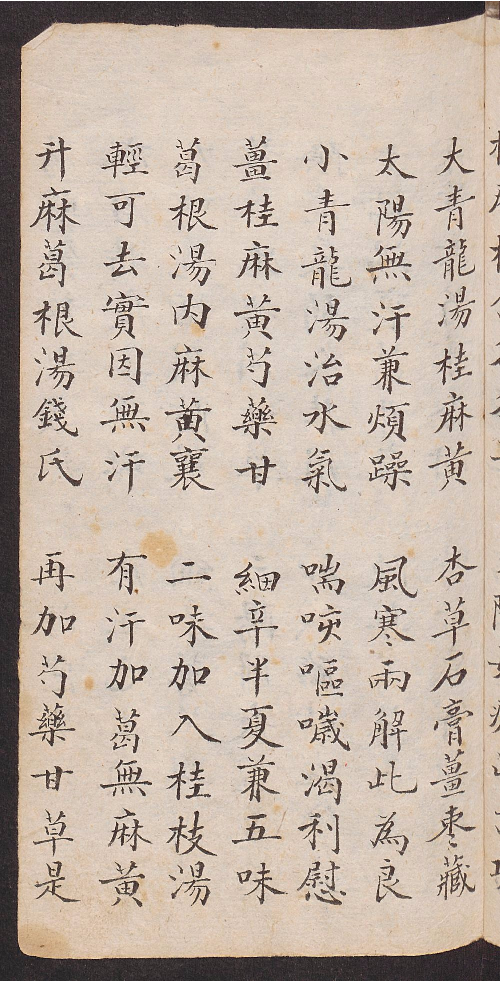 大青龍湯桂麻黄 杏草石膏薑枣藏
太陽無汗兼煩躁 風寒兩解此為良
小青龍湯治水氣 喘咳嘔噦渴利慰
薑桂麻黄芍藥甘 細辛半夏兼五味
葛根湯内麻黄襄 二味加入桂枝湯
輕可去實因無汗 有汗加葛無麻黄
升麻葛根湯錢氏 再加芍藥甘草是